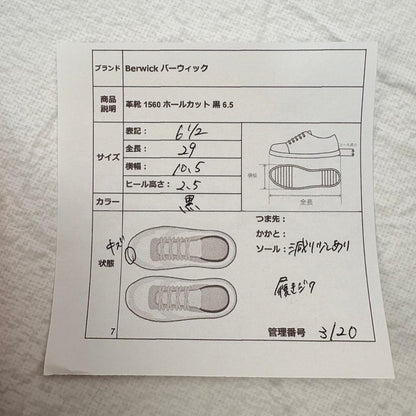 ブランド Berwick バーウィック
商品説明 革靴 1560 ホールカット 黒 6.5
サイズ
表記: 6 1/2
全長: 29
横幅: 10.5
ヒール高さ: 2.5
ヒール高さ
横幅
全長
カラー 黒
状態
キズ
つま先:
かかと:
ソール: 減り少しあり
履きジワ
7
管理番号 3120